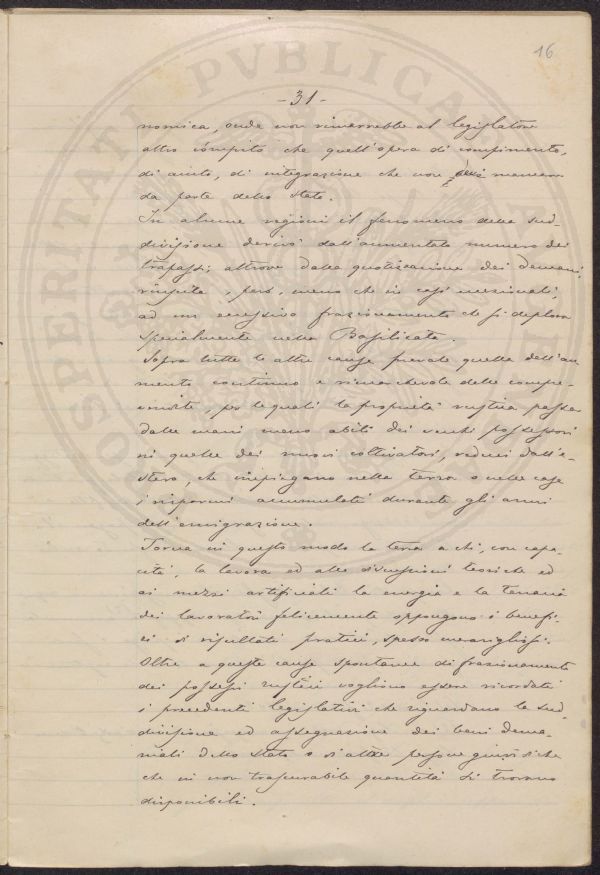 16
- 31 -
nomica, onde non rimarrebbe al legislatore
altro cómpito che quell'opera di compimento,
di aiuto, di integrazione che non deve mancare
da parte dello Stato.
In alcune regioni il fenomeno della sud-
divisione derivò dall'aumentato numero dei
trapassi; altrove dalla quotizzazione dei demani,
riuscita, però, meno che in casi eccezionali,
ad un eccessivo frazionamento che si deplora
specialmente nella Basilicata.
Sopra tutte le altre cause prevale quella dell'au-
mento continuo e rimarchevole delle compra-
vendite, per le quali la proprietà rustica passa
dalle mani meno abili dei vecchi possessori
in quelle dei nuovi coltivatori, reduci dall'e-
stero, che impiegano nella terra o nelle case
i risparmi accumulati durante gli anni
dell'emigrazione.
Torna in questo modo la terra a chi, con capa-
cità, la lavora ed alle discussioni teoriche ed
ai mezzi artificiali la energia e la tenacia
dei lavoratori felicemente oppongono i benefi-
ci di risultati pratici, spesso meravigliosi.
Oltre a queste cause spontanee di frazionamento
dei possessi rustici vogliono essere ricordati
i precedenti legislativi che riguardano la sud-
divisione ed assegnazione dei beni dema-
niali dello Stato o di altre persone giuridiche
che in non trascurabile quantità si trovano
disponibili.
PROSPERITATI PVBLICAE